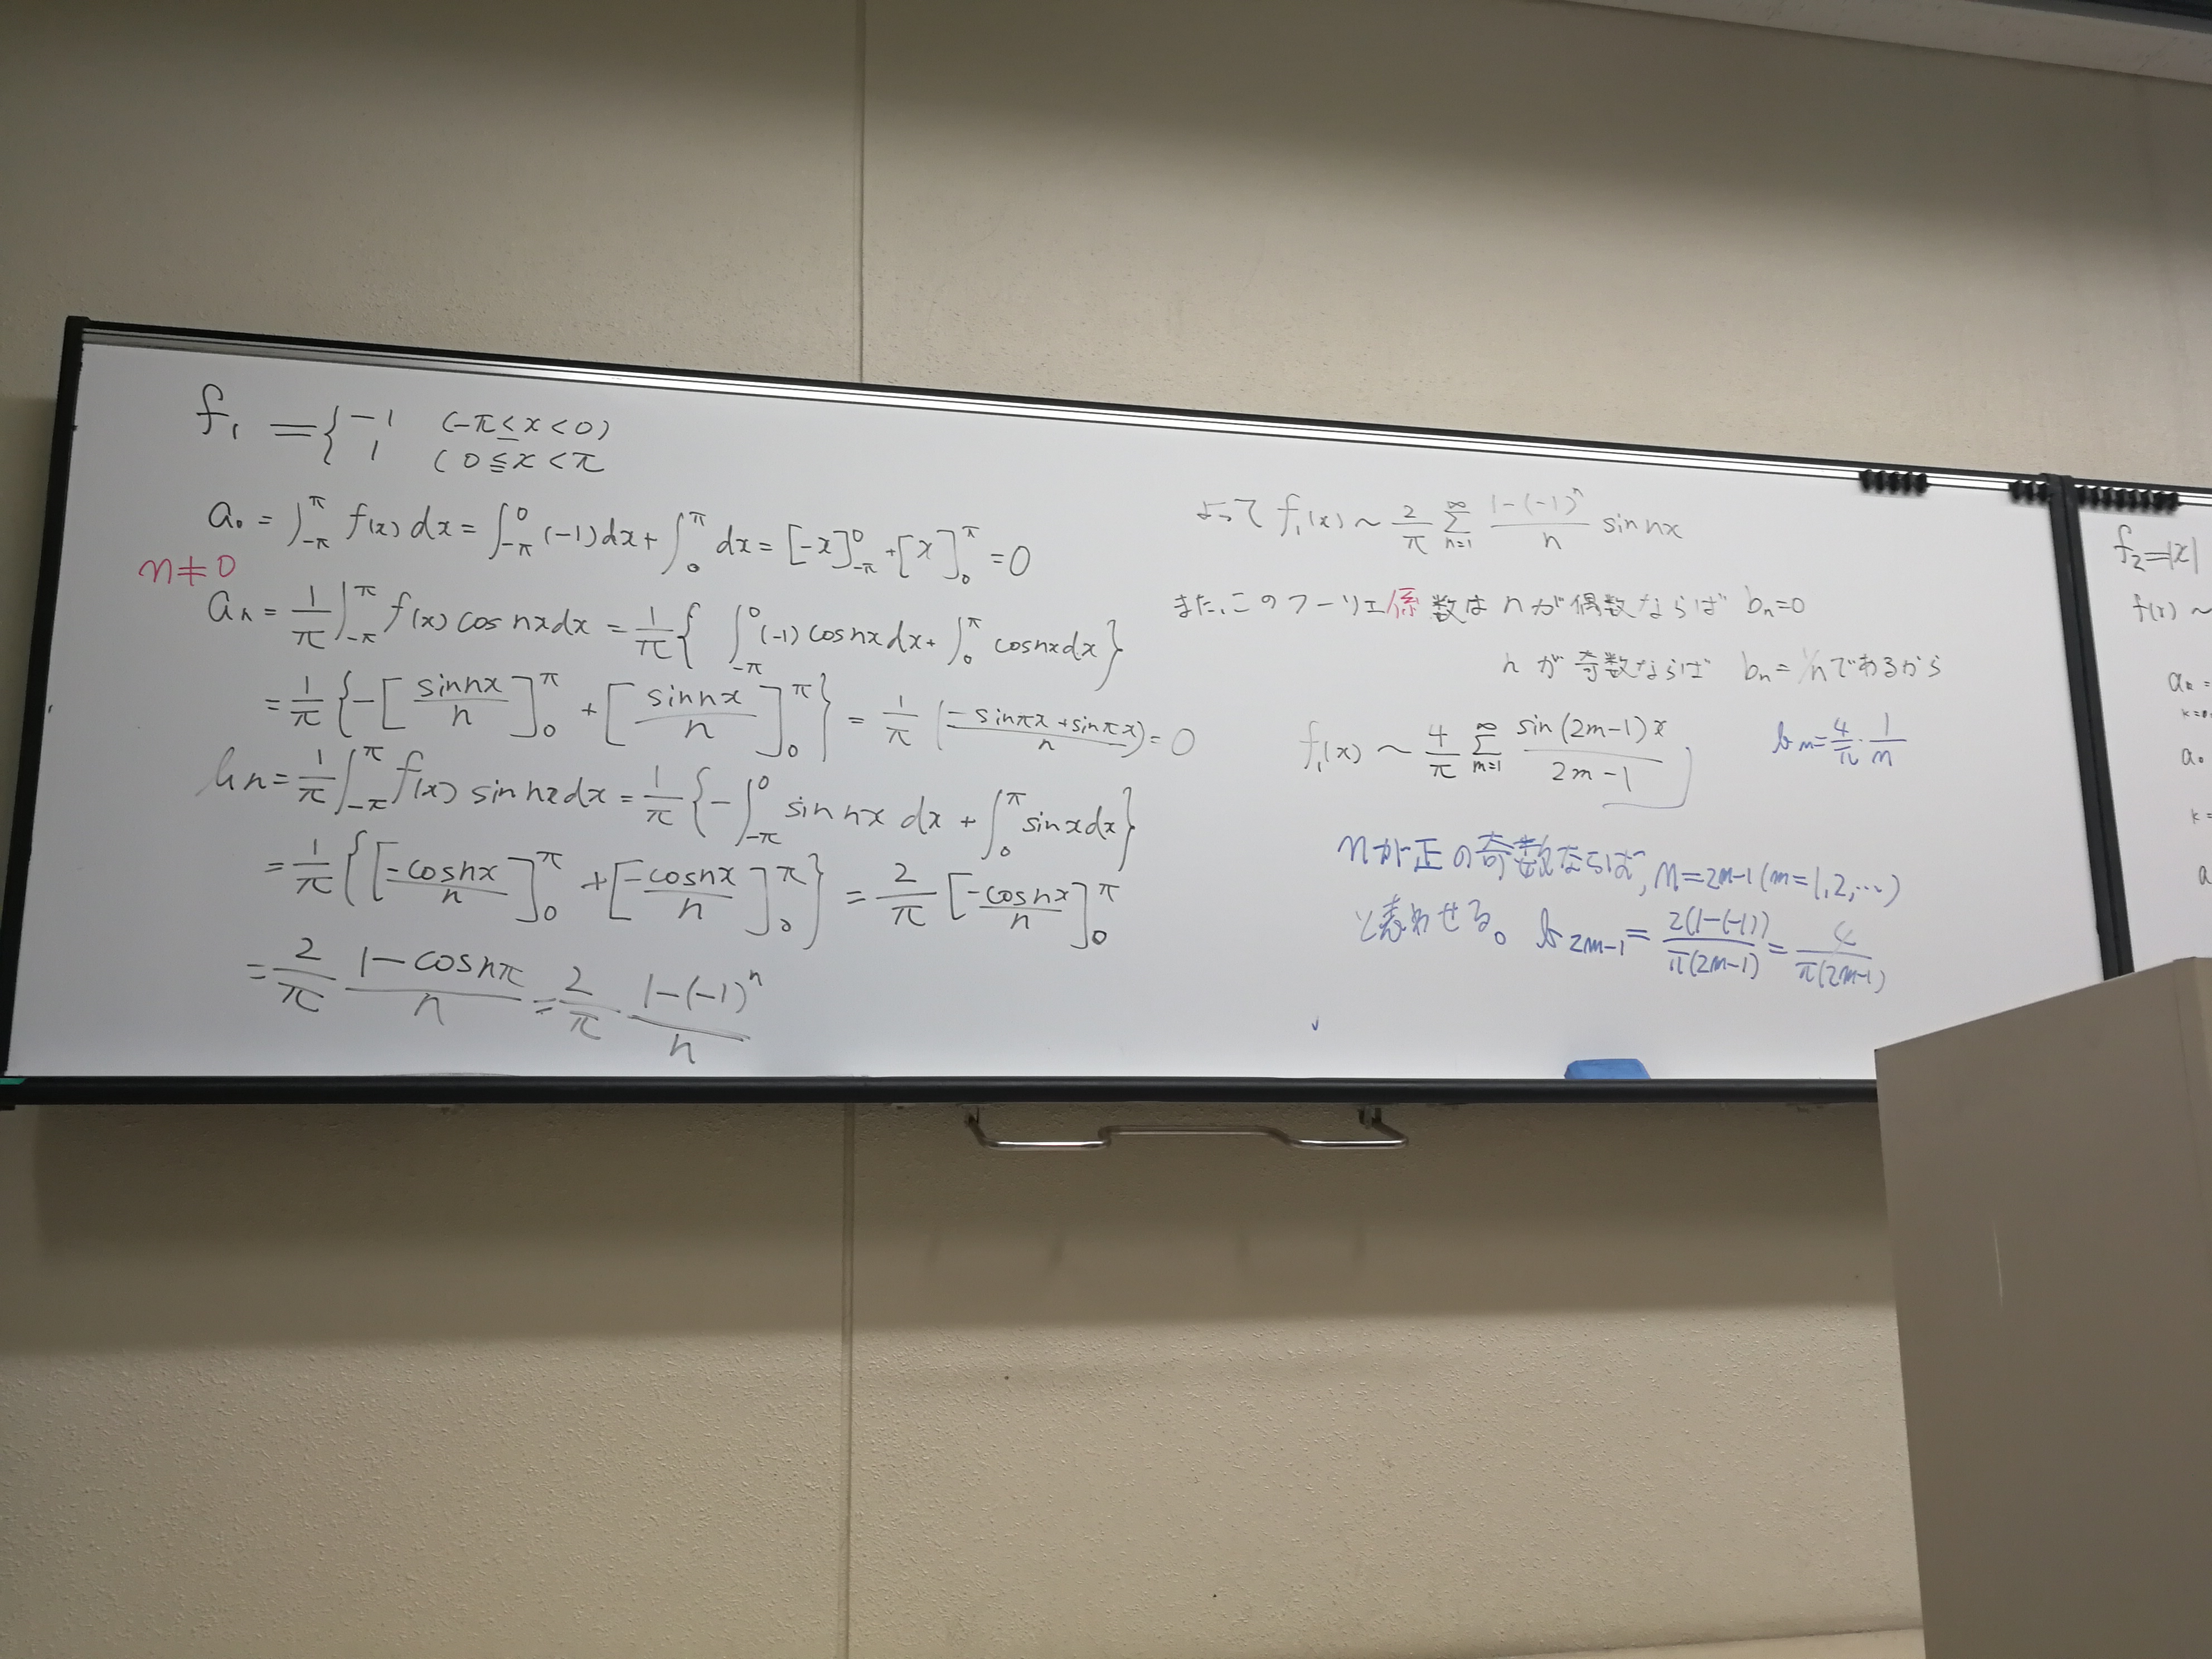 f₁ = { −1 (−π ≤ x < 0)
1 ( 0 ≦ x < π
a₀ = ∫_{−π}^{π} f(x) dx = ∫_{−π}^{0} (−1) dx + ∫_{0}^{π} dx = [−x]_{−π}^{0} + [x]_{0}^{π} = 0
n ≠ 0
aₙ = 1/π ∫_{−π}^{π} f(x) cos nx dx = 1/π { ∫_{−π}^{0} (−1) cos nx dx + ∫_{0}^{π} cos nx dx }
= 1/π { −[ sin nx / n ]_{0}^{π} + [ sin nx / n ]_{0}^{π} } = 1/π ( (− sin πx + sin πx) / n ) = 0
bₙ = 1/π ∫_{−π}^{π} f(x) sin nx dx = 1/π { −∫_{−π}^{0} sin nx dx + ∫_{0}^{π} sin x dx }
= 1/π { [ −cos nx / n ]_{0}^{π} + [ −cos nx / n ]_{0}^{π} } = 2/π [ −cos nx / n ]_{0}^{π}
= 2/π (1 − cos nπ)/n = 2/π (1 − (−1)ⁿ)/n
よって f₁(x) ~ 2/π Σ_{n=1}^{∞} (1 − (−1)ⁿ)/n sin nx
また、このフーリエ係数は n が偶数ならば bₙ = 0
n が奇数ならば bₙ = 1/n であるから
f₁(x) ~ 4/π Σ_{m=1}^{∞} sin (2m−1) x / (2m−1)
bₙ = 4/π · 1/n
nが正の奇数ならば, n = 2m−1 (m = 1, 2, …)
と表わせる。 b_{2m−1} = 2(1−(−1)) / π(2m−1) = 4 / π(2m−1)
f₂ = |x|
f(x) ~
a₀
a